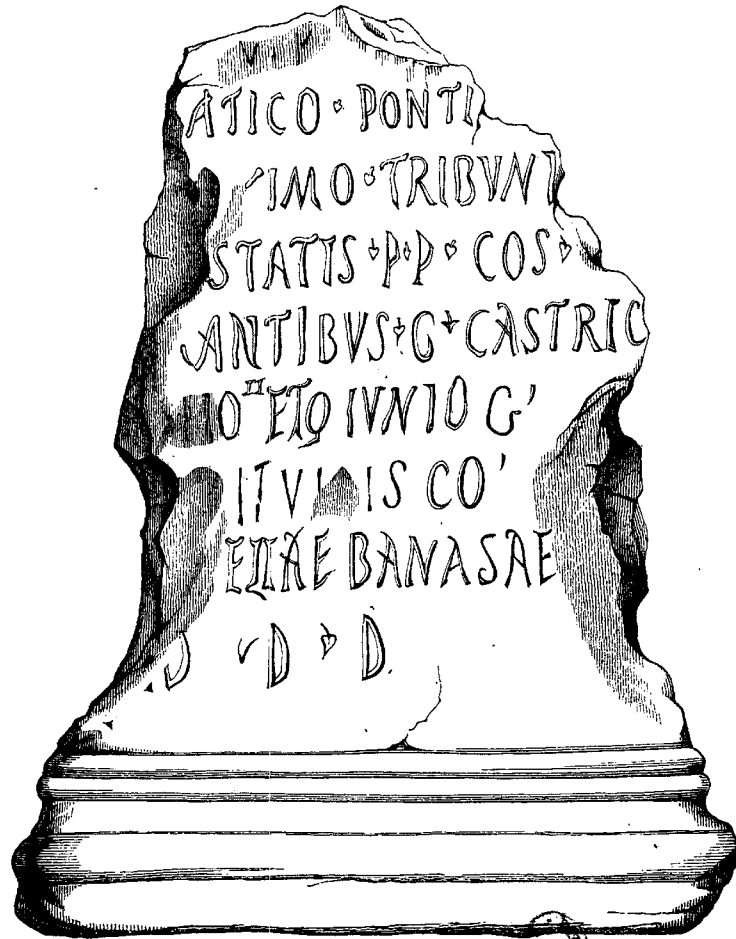 ATICO · PONTI
IMO · TRIBVNI
STATIS · P · P · COS ·
ANTIBVS · G · CASTRIC
O II ET Q IVNIO G'
ITV IS CO'
BANASAE
D · D